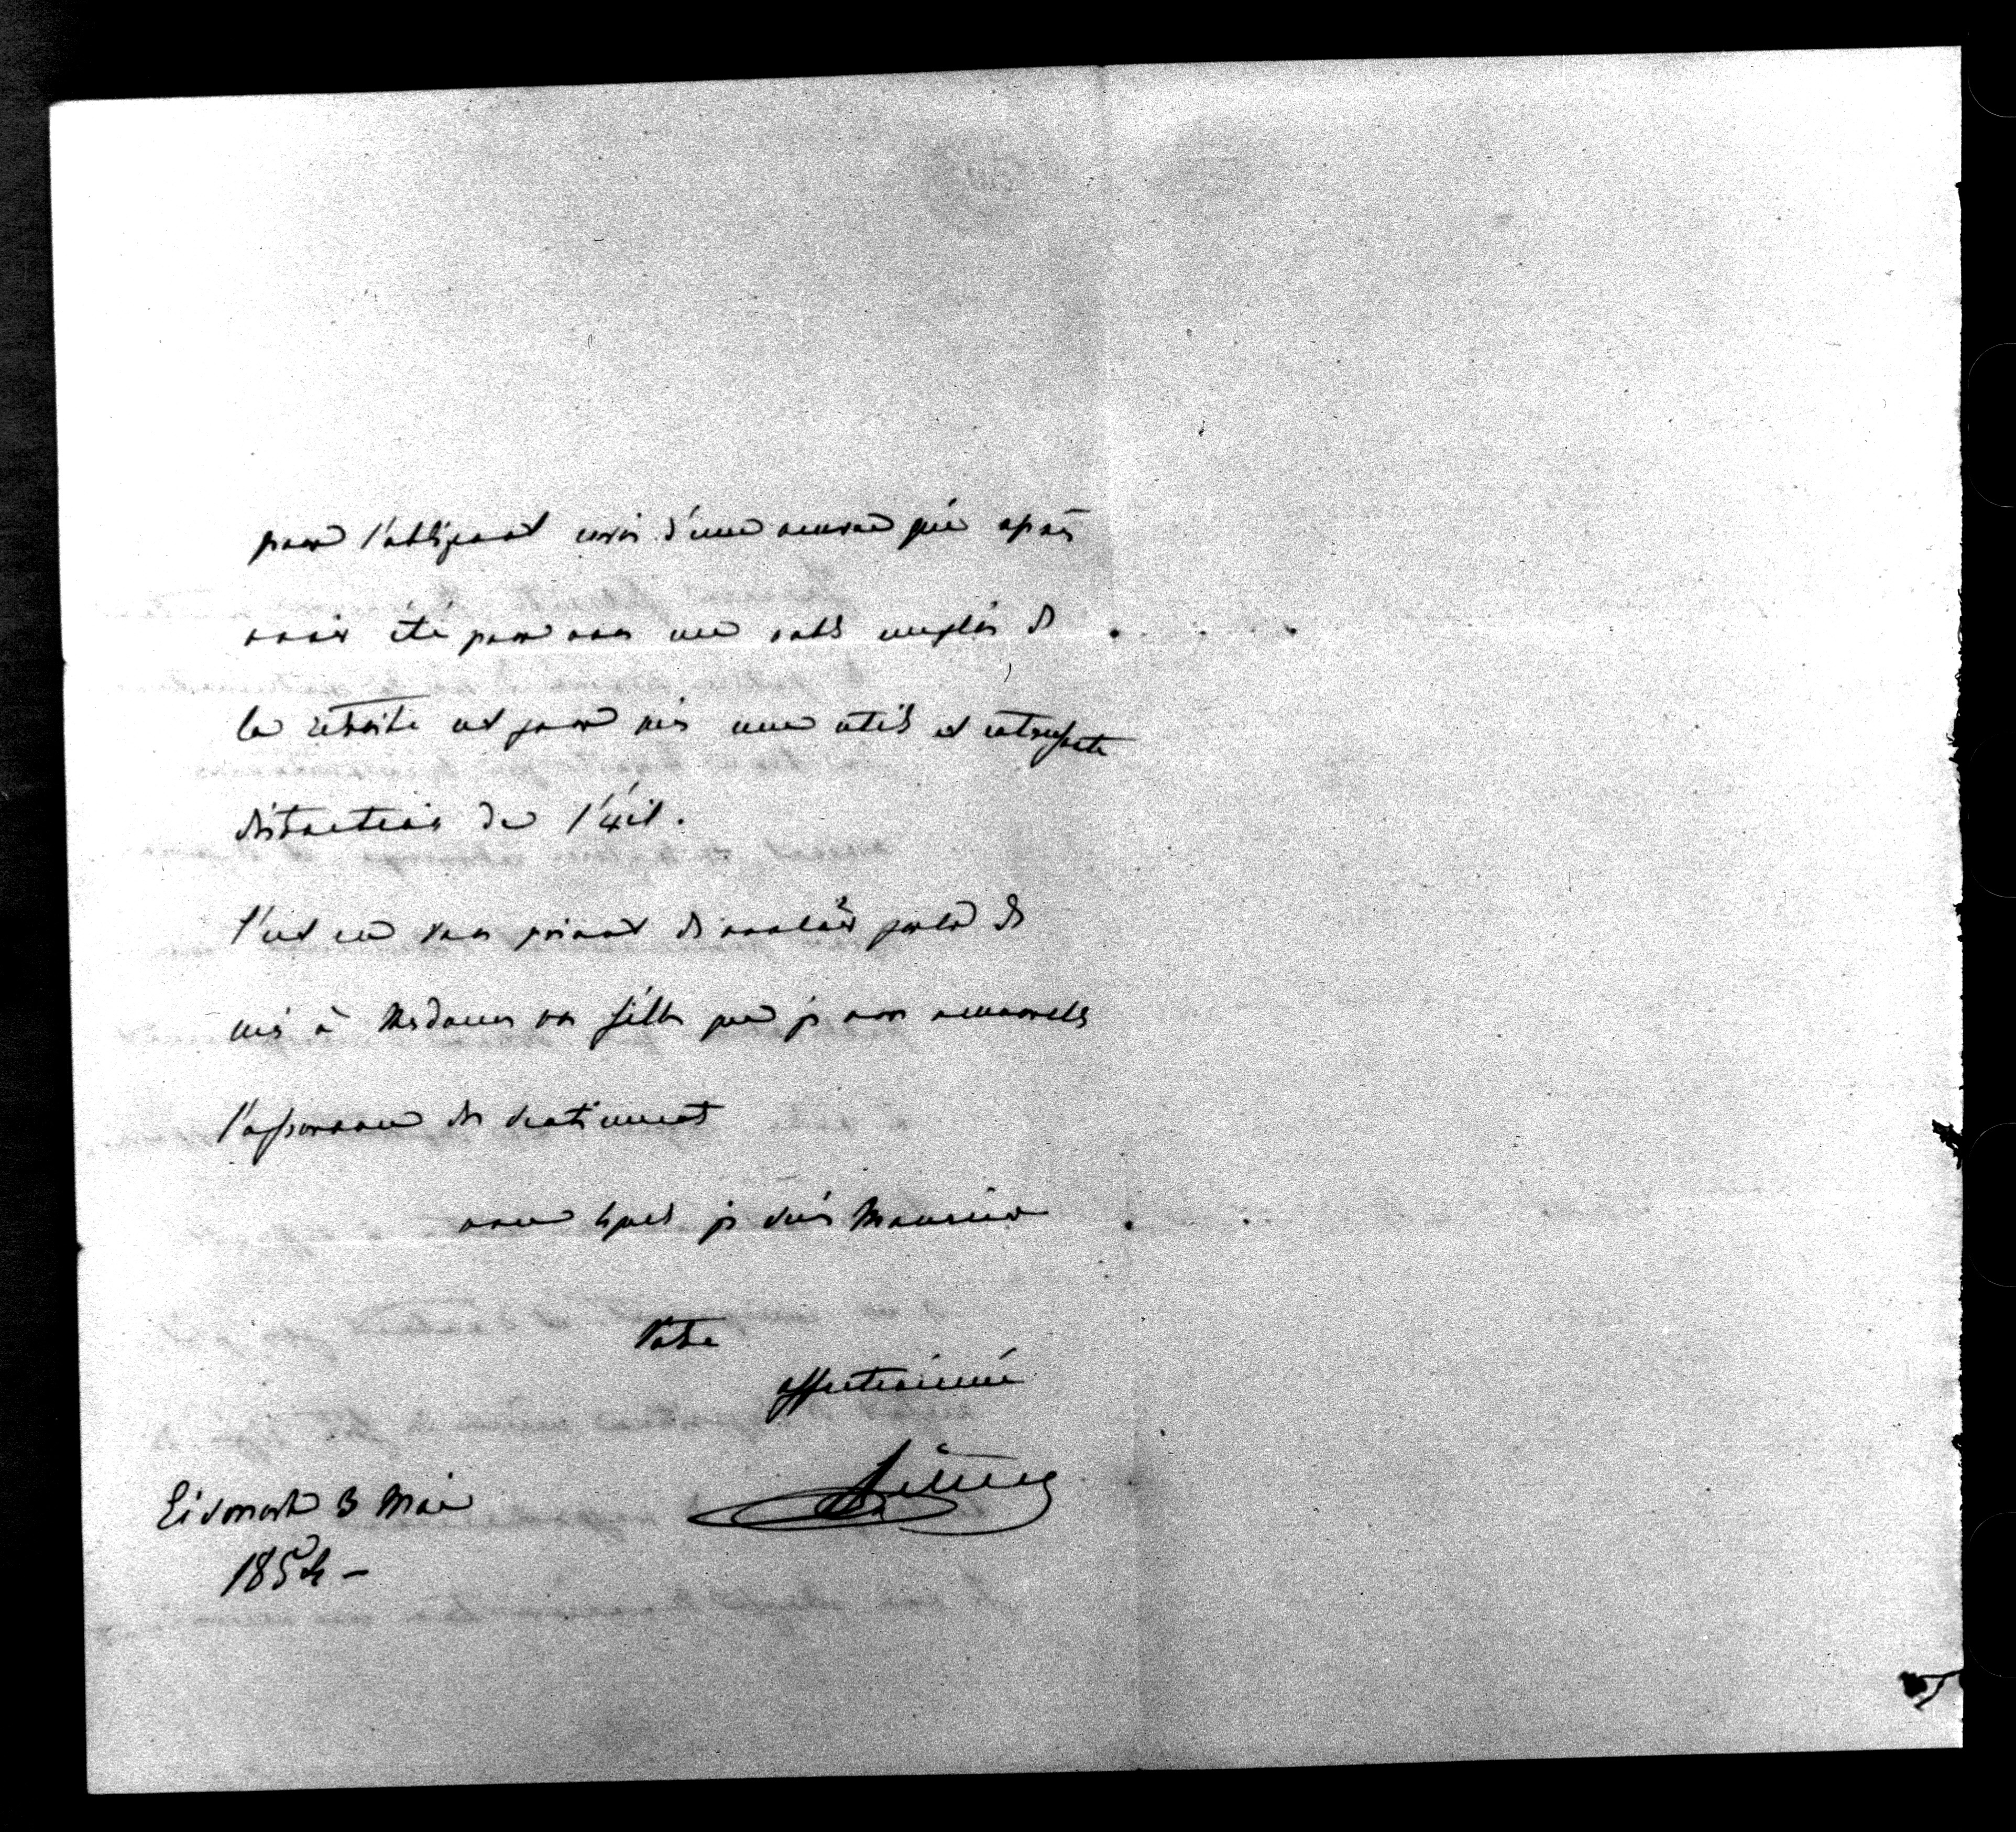 pour l'obligeant envoi d'une œuvre qui après
avoir été pour vous un noble emploi de
la retraite est pour moi une utile et intéressante
distraction de l'éxil.
C'est en vous priant de vouloir parler de
moi à Mesdames vos filles que je vous renouvelle
l'assurance des sentiments
avec lesquels je suis Monsieur
Votre
affectionné
3 Mai
1854 –